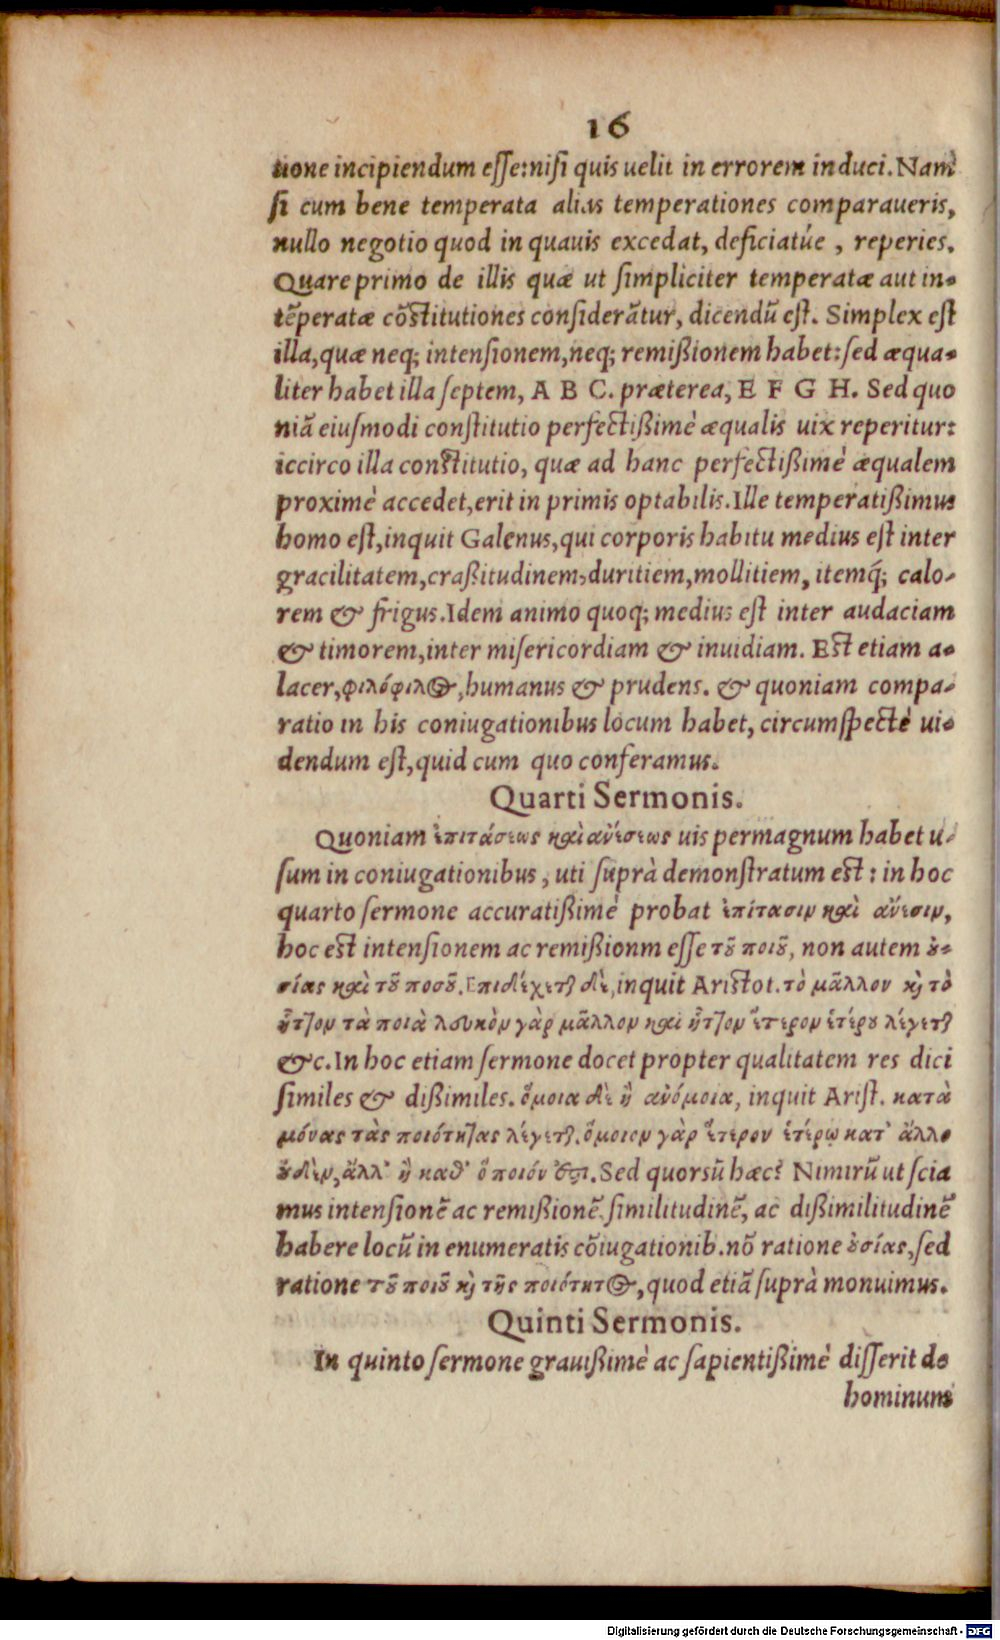 16
tione incipiendum eſſe:niſi quis uelit in errorem induci. Nam
ſi cum bene temperata alias temperationes comparaueris,
nullo negotio quod in quauis excedat, deficiatúe , reperies.
Quare primo de illis quæ ut ſimpliciter temperatæ aut in-
tẽperatæ cõſtitutiones conſiderãtur, dicendũ eſt. Simplex eſt
illa,quæ neq; intenſionem,neq; remißionem habet:ſed æqua-
liter habet illa ſeptem, A B C. præterea, E F G H. Sed quo
niã eiuſmodi conſtitutio perfectißimè æqualis uix reperitur:
iccirco illa conſtitutio, quæ ad hanc perfectißimè æqualem
proximè accedet,erit in primis optabilis.Ille temperatißimus
homo eſt,inquit Galenus,qui corporis habitu medius eſt inter
gracilitatem,craßitudinem,duritiem,mollitiem, itemq́; calo-
rem & frigus.Idem animo quoq; medius eſt inter audaciam
& timorem,inter miſericordiam & inuidiam. Eſt etiam a-
lacer,φιλόφιλος,humanus & prudens. & quoniam compa-
ratio in his coniugationibus locum habet, circumſpectè ui-
dendum eſt,quid cum quo conferamus.
Quarti Sermonis.
Quoniam ἐπιτάσεως καὶ ἀνέσεως uis permagnum habet u-
ſum in coniugationibus , uti ſuprà demonſtratum eſt : in hoc
quarto ſermone accuratißimè probat ἐπίτασιν καὶ ἄνεσιν,
hoc eſt intenſionem ac remißionm eſſe τȣ͂ ποιȣ͂, non autem ȣ̓-
σίας καὶ τȣ͂ ποσȣ͂. Επιδέχεται δὲ,inquit Ariſtot.τὸ μᾶλλον κὶ τὸ
ἧττον τὰ ποιὰ λευκὸν γὰρ μᾶλλον καὶ ἧττον ἕτερον ἑτέρȣ λέγεται
&c.In hoc etiam ſermone docet propter qualitatem res dici
ſimiles & dißimiles. ὅμοια δὲ ἢ ἀνόμοια, inquit Ariſt. κατὰ
μόνας τὰς ποιότητας λέγεται. ὅμοιον γὰρ ἕτερον ἑτέρῳ κατ' ἄλλο
ȣ̓δὲν, ἀλλ' ἢ καθ' ὃ ποιόν ἐστι. Sed quorsũ hæc? Nimirũ ut ſcia
mus intenſionẽ ac remißionẽ, ſimilitudinẽ, ac dißimilitudinẽ
habere locũ in enumeratis cõiugationib.nõ ratione ȣ̓σίας,ſed
ratione τȣ͂ ποιȣ͂ κὶ τῆς ποιότητος,quod etiã ſuprà monuimus.
Quinti Sermonis.
In quinto ſermone grauißimè ac ſapientißimè diſſerit de
hominum
Digitalisierung gefördert durch die Deutsche Forschungsgemeinschaft - DFG